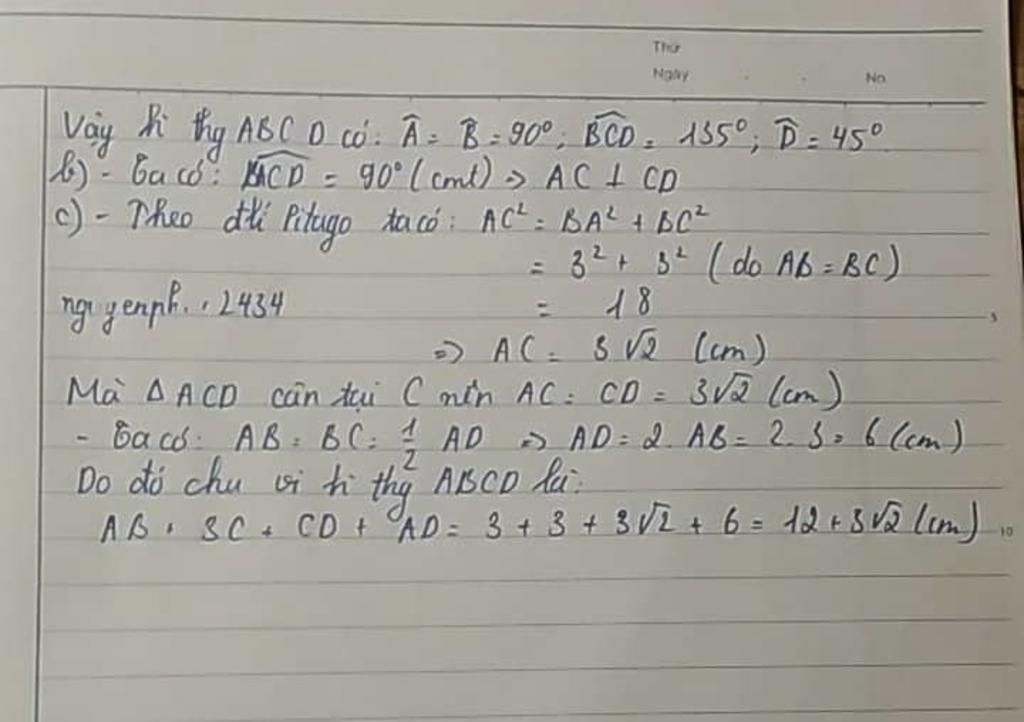 Thứ
Ngày . . No
Vậy hì thg ABCD có: Â = B̂ = 90°; B͡CD = 135°; D̂ = 45°
b) - Ta có: ACD = 90° (cmt) => AC ⊥ CD
c) - Theo đlí Pitago ta có: AC² = BA² + BC²
= 3² + 3² (do AB = BC)
nguyenph..2434 = 18
5
=> AC = 3√2 (cm)
Mà Δ ACD cân tại C nên AC = CD = 3√2 (cm)
- Ta có: AB = BC = 1/2 AD => AD = 2. AB = 2. 3 = 6 (cm)
Do đó chu vi hì thg ABCD là:
AB + BC + CD + AD = 3 + 3 + 3√2 + 6 = 12 + 3√2 (cm)
10